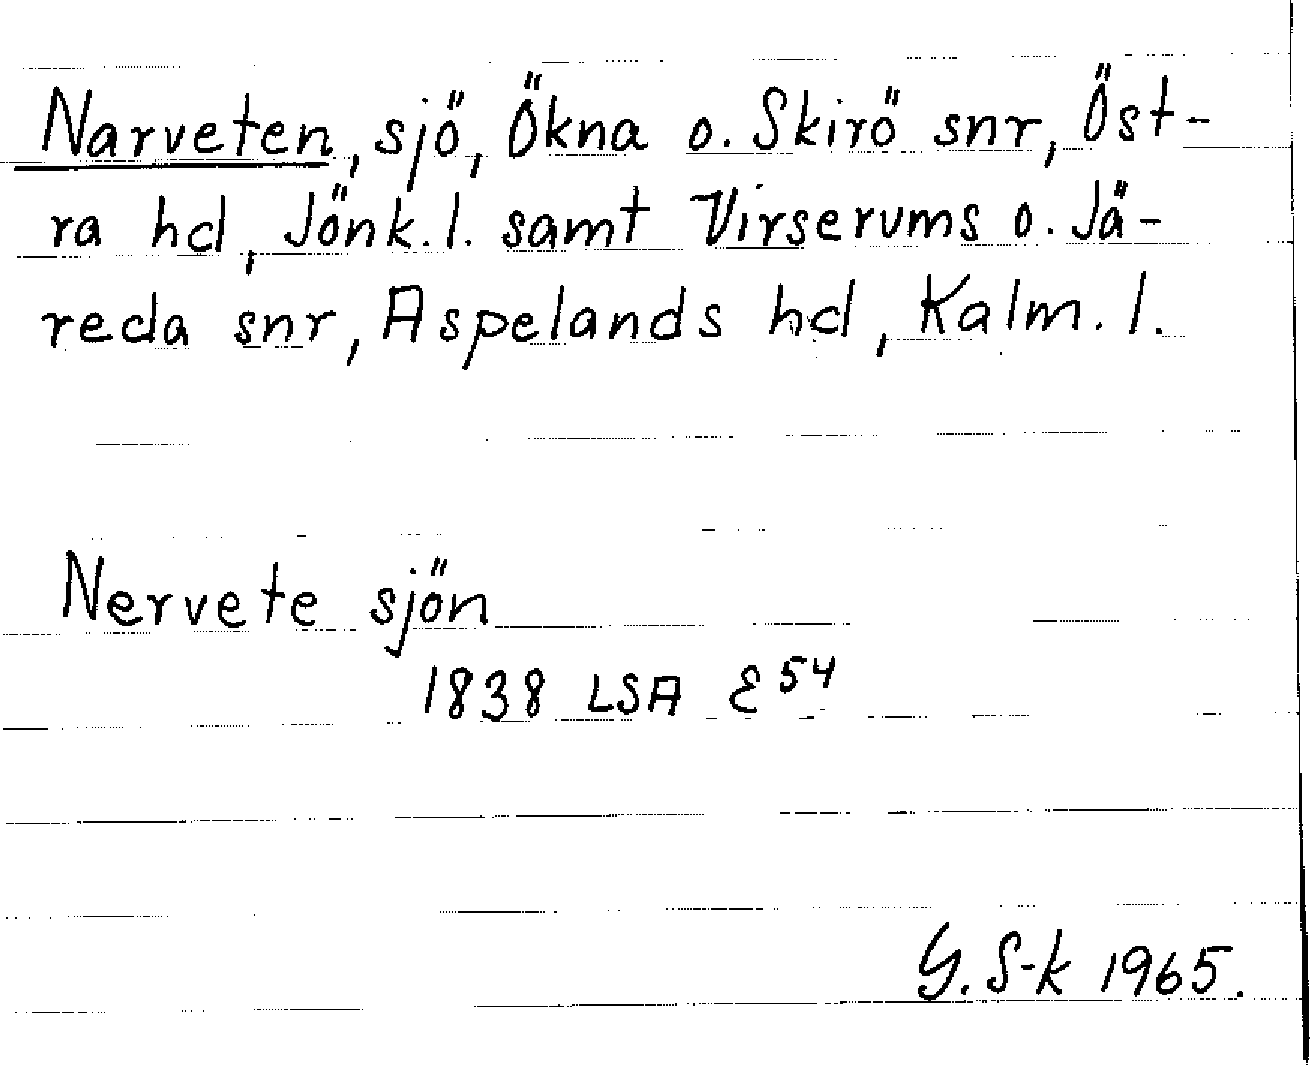 Narveten, sjö, Ökna o. Skirö snr, Öst-
ra hd, Jönk.l. samt Virserums o. Jä-
reda snr, Aspelands hd, Kalm. l.
Nervete sjön
1838 LSA E54
G. S-k 1965.